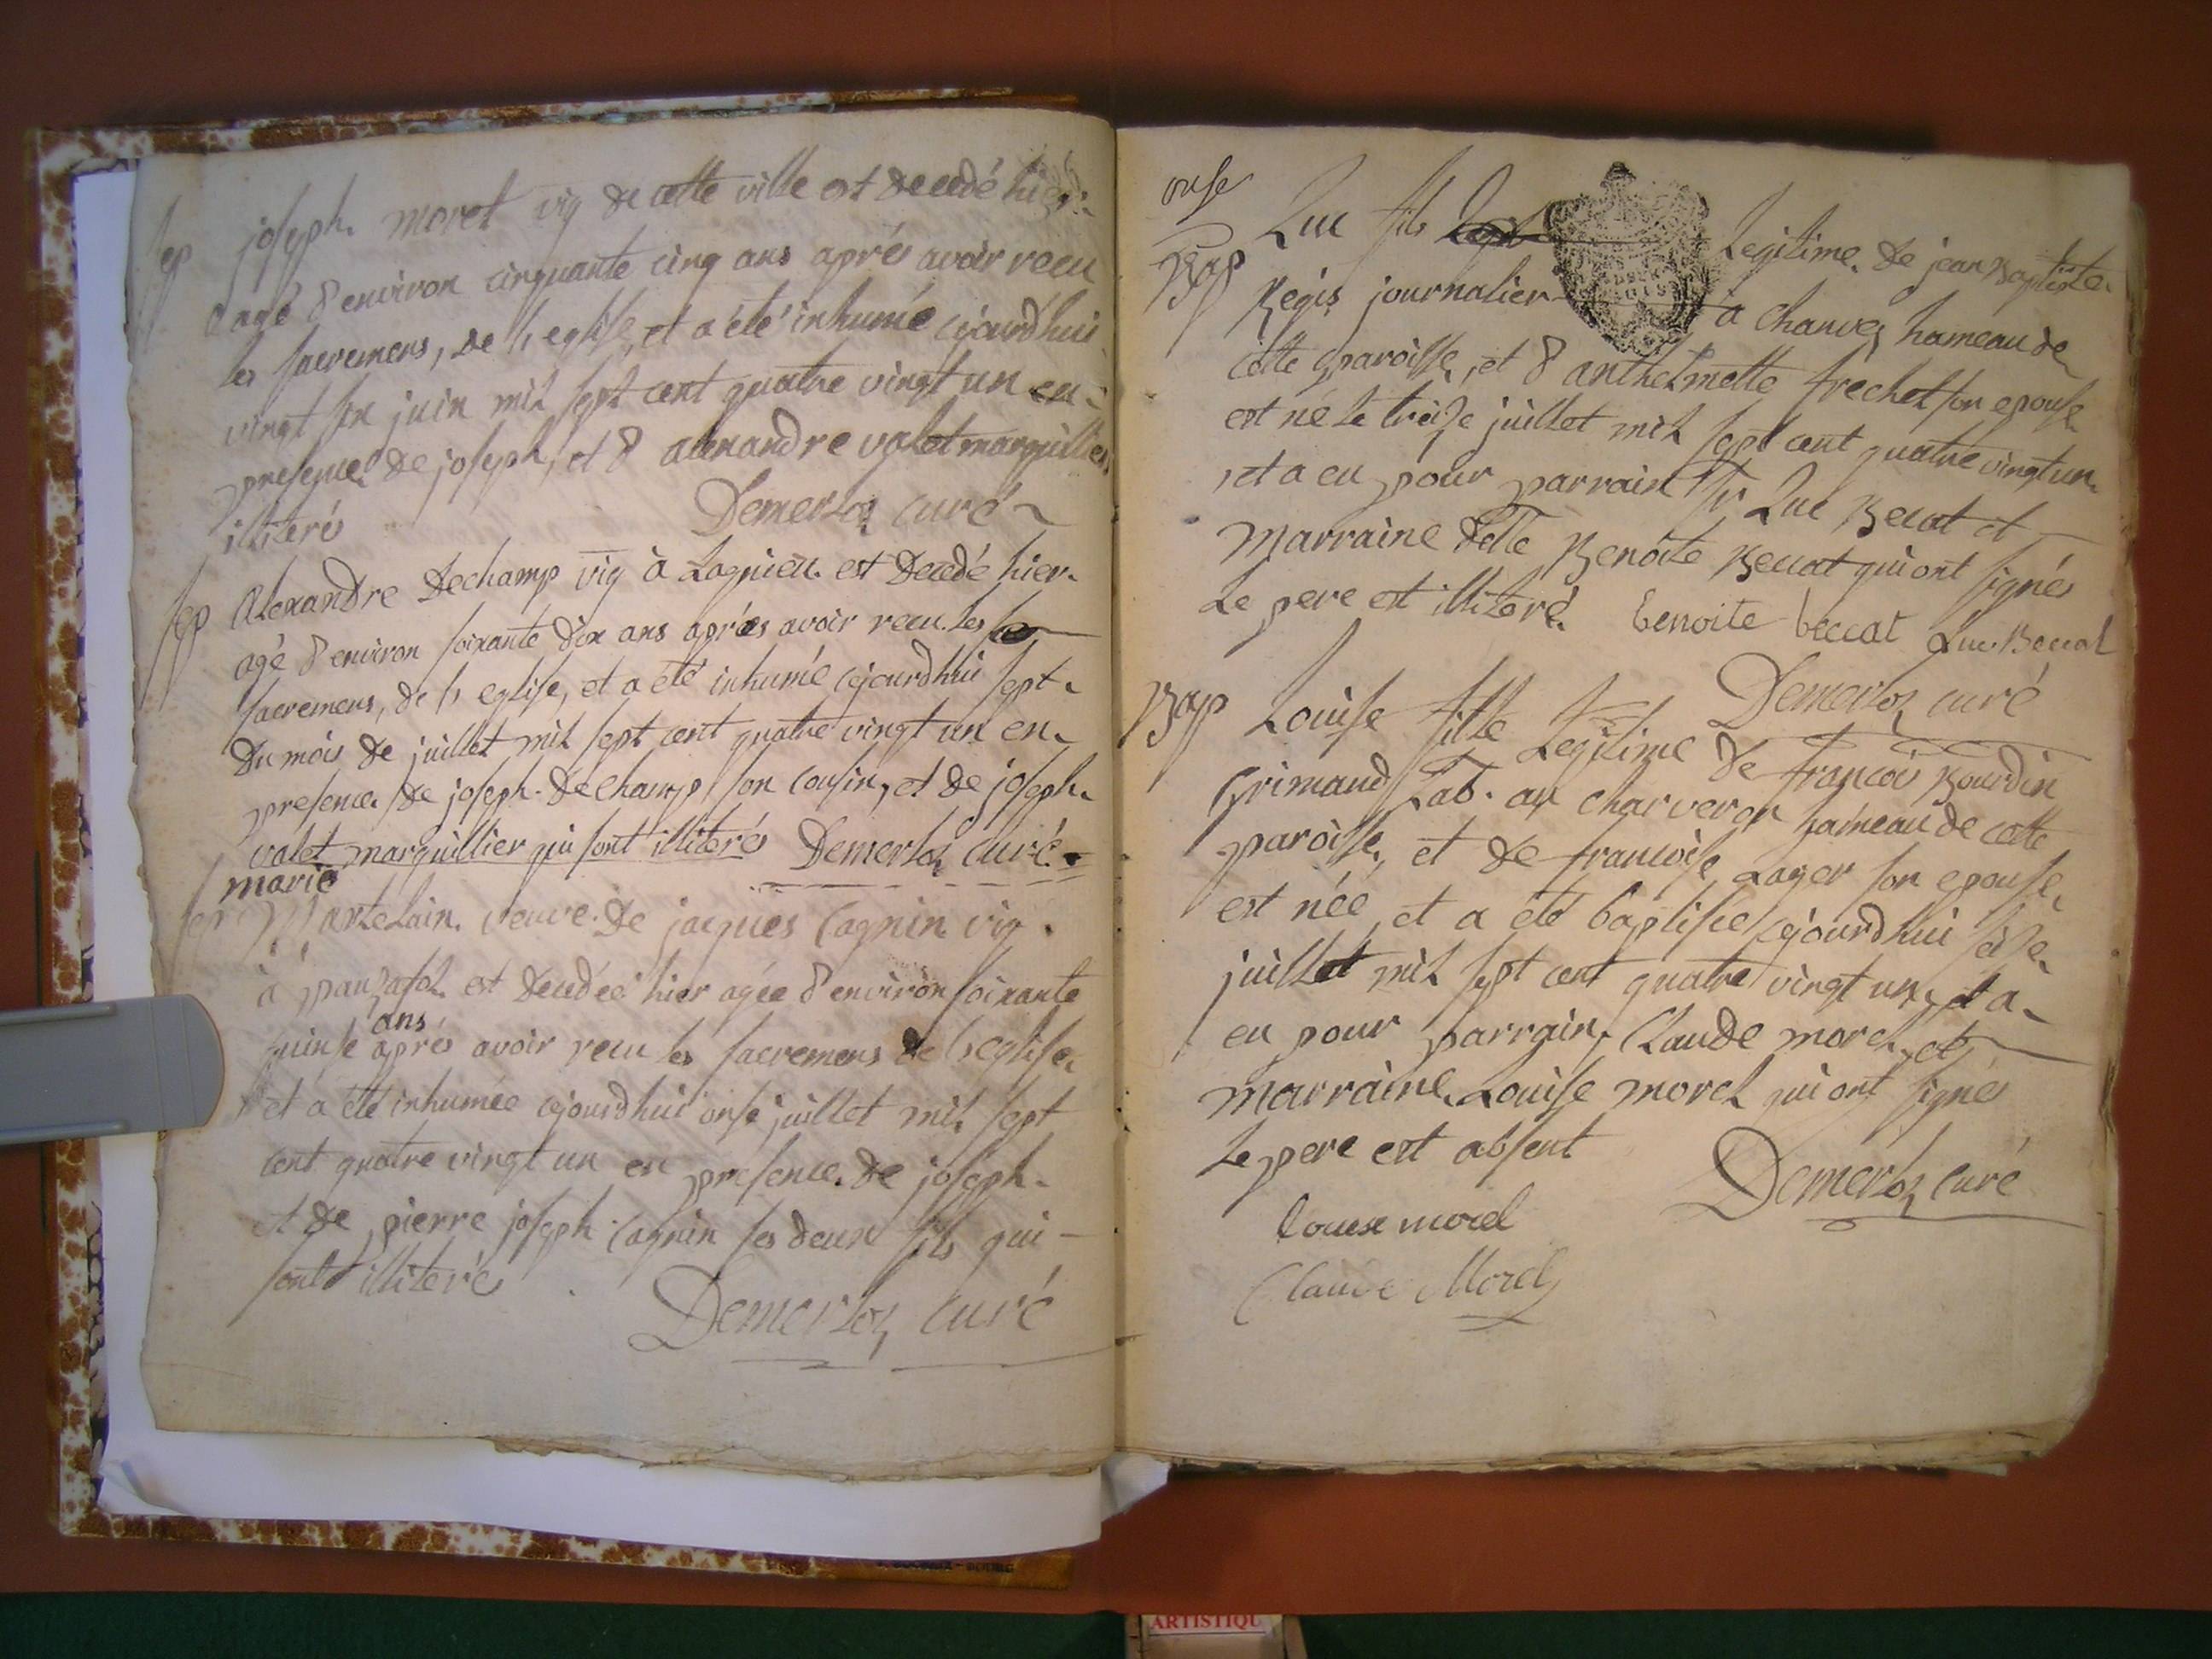 sep joseph. moret vig de cette ville est decedé hier
agé d'environ cinquante cinq ans aprés avoir recu
les sacremens, de l'eglise, et a été inhumé cejourdhui
vingt six juin mil sept cent quatre vingt un en
presence de joseph, et d'alexandre valet marguilliers
illiterés Demerloz curé
sep Alexandre Dechamp vig à Lagnieu est decedé hier
agé d'environ soixante dix ans aprés avoir recu les
sacremens, de l'eglise, et a été inhumé cejourdhui sept
du mois de juillet mil sept cent quatre vingt un en
presence de joseph Dechamp son cousin, et de joseph
valet marguillier qui sont illiterés Demerloz curé
marie
sep Martelain veuve de jacques Cagnin vig
à est decedée hier agée d'environ soixante
ans
quinse aprés avoir recu les sacremens de l'eglise
et a été inhumée cejourdhui onse juillet mil sept
cent quatre vingt un en presence de joseph
et de pierre joseph Cagnin ses deux fils qui
sont illiterés
Demerloz curé
onse
Bap Luc fils Legitime de jean Baptiste
Régis journalier a hameau de
cette paroisse, et d'anthelmette frechet son epouse
est né le treise juillet mil sept cent quatre vingt un
et a eu pour parrain sr Luc Beccat et
marraine delle Benoite Beccat qui ont signés
Le pere est illiteré. benoite beccat Luc Beccat
Demerloz curé
Bap Louise fille Legitime de francois Bourdin
Grimaud Lab. au charveron hameau de cette
paroisse, et de francoise Lager son epouse
est née, et a été baptisée cejourdhui seise
juillet mil sept cent quatre vingt un, et a
eu pour parrain, Claude morel et
marraine Louise morel qui ont signés
Le pere est absent Demerloz curé
louise morel
Claude Morel
ARTISTIQU